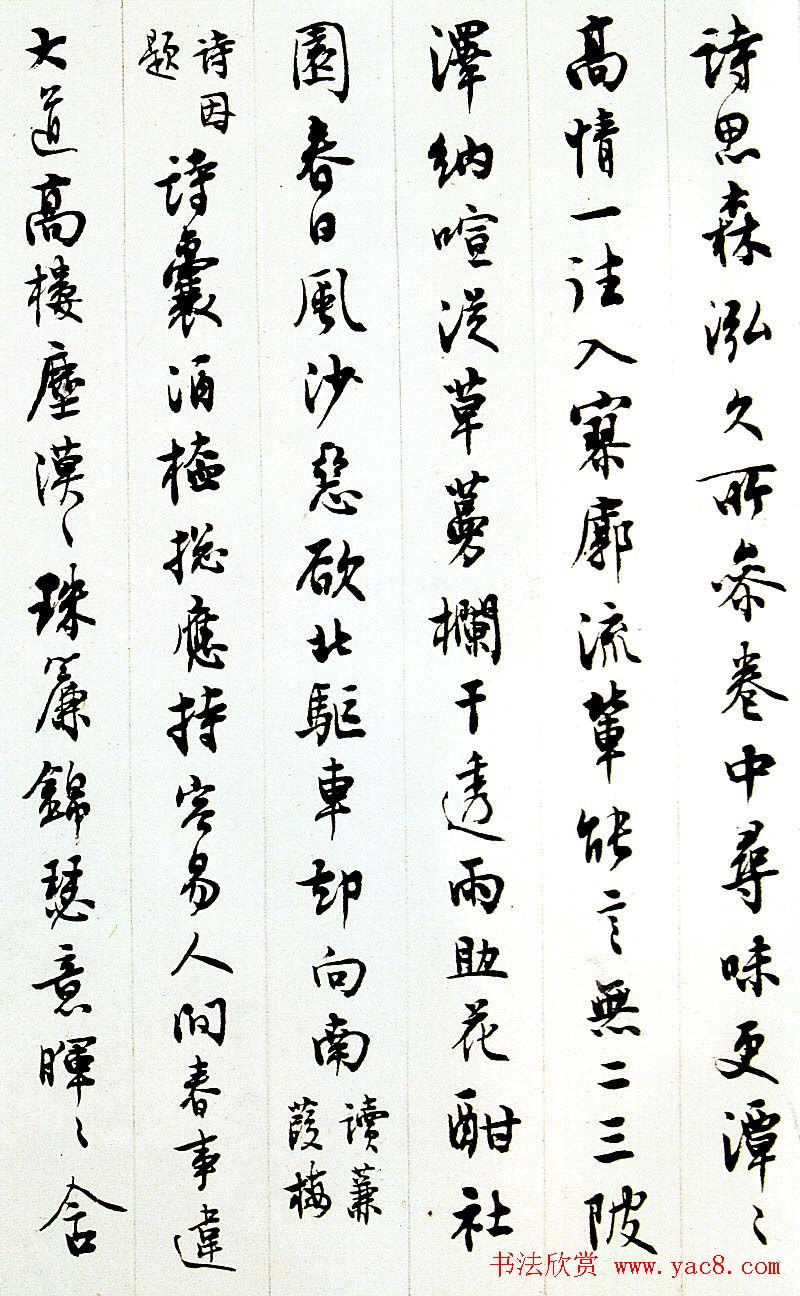 詩思森泓久所參卷中尋味更潭〻
高情一往入寥廓流輩能言無二三陂
澤納喧從草蔓欄干透雨助花酣社
園春日風沙惡欲北驅車却向南讀蒹
葭樓
詩因
題詩囊酒榼揔應持容易人間春事違
大道高樓塵漠〻珠簾錦瑟意暉〻含
书法欣赏 www.yac8.com